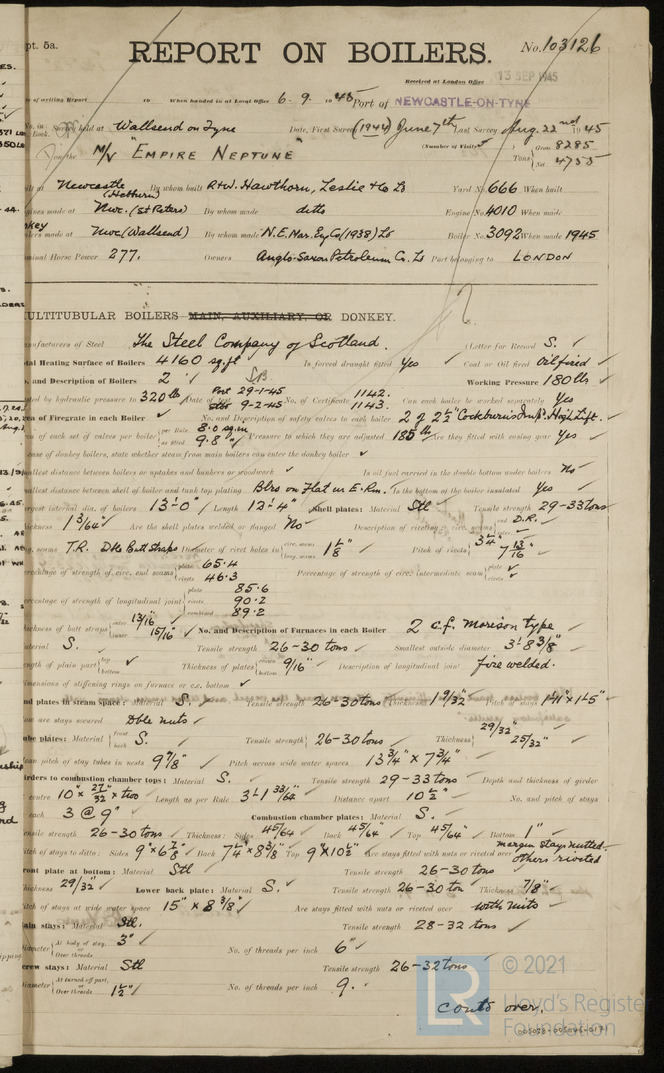 pt. 5a.
REPORT ON BOILERS.
No. 103126
Received at London Office 13 SEP 1945
of writing Report 19 When handed in at Local Office 6. 9. 1945 Port of NEWCASTLE-ON-TYNE
No. in Survey held at Wallsend on Tyne Date, First Survey (1944) June 7th Last Survey Aug. 22nd 1945
on the M/V "EMPIRE NEPTUNE" (Number of Visits) Tons Gross 8285 Net 4755
Built at Newcastle (Hebburn) By whom built R & W. Hawthorn, Leslie & Co Ld Yard No. 666 When built
Engines made at Nwc. (St Peters) By whom made ditto Engine No. 4010 When made
Boilers made at Nwc (Wallsend) By whom made N.E. Mar. Eng Co (1938) Ld Boiler No. 3092 When made 1945
Nominal Horse Power 277. Owners Anglo-Saxon Petroleum Co. Ld Port belonging to LONDON
MULTITUBULAR BOILERS MAIN, AUXILIARY, OR DONKEY.
Manufacturers of Steel The Steel Company of Scotland. (Letter for Record S.
Total Heating Surface of Boilers 4160 sq. ft Is forced draught fitted Yes Coal or Oil fired Oil fired
No. and Description of Boilers 2 SB Working Pressure 180 lbs
Tested by hydraulic pressure to 320 lb Date of test Port 29-1-45 Stbd 9-2-45 No. of Certificate 1142. 1143. Can each boiler be worked separately Yes
Area of Firegrate in each Boiler No. and Description of safety valves to each boiler 2 @ 2½" Cockburn's Impd. High Lift.
Area of each set of valves per boiler per Rule 8.0 sq. in as fitted 9.8 " Pressure to which they are adjusted 185 lb Are they fitted with easing gear Yes
In case of donkey boilers, state whether steam from main boilers can enter the donkey boiler
Smallest distance between boilers or uptakes and bunkers or woodwork Is oil fuel carried in the double bottom under boilers No
Smallest distance between shell of boiler and tank top plating Blrs on Flat in E. Rm. Is the bottom of the boiler insulated Yes
Largest internal dia. of boilers 13'-0" Length 12'-4" Shell plates: Material Stl Tensile strength 29-33 tons
Thickness 1 3/64" Are the shell plates welded or flanged No Description of riveting: circ. seams end D.R. inter
long. seams T.R. Dble Butt Straps Diameter of rivet holes in circ. seams long. seams 1 1/8" Pitch of rivets 3¼" 7 13/16"
Percentage of strength of circ. end seams plate 65.4 rivets 46.3 Percentage of strength of circ. intermediate seam plate rivets
Percentage of strength of longitudinal joint plate 85.6 rivets 90.2 combined 89.2
Thickness of butt straps outer 13/16" inner 15/16" No. and Description of Furnaces in each Boiler 2 C.F. Morison type
Material S. Tensile strength 26-30 tons Smallest outside diameter 3'-8 3/8"
Length of plain part top bottom Thickness of plates crown bottom 9/16" Description of longitudinal joint fire welded.
Dimensions of stiffening rings on furnace or c.c. bottom
End plates in steam space: Material S. Tensile strength 26-30 tons Thickness 1 9/32" Pitch of stays
How are stays secured Dble nuts
Tube plates: Material front back S. Tensile strength 26-30 tons Thickness 29/32" 25/32"
Mean pitch of stay tubes in nests 9 7/8" Pitch across wide water spaces 13¾" x 7¾"
Girders to combustion chamber tops: Material S. Tensile strength 29-33 tons Depth and thickness of girder
at centre 10" x 27/32" x two Length as per Rule 3'-1 33/64" Distance apart 10½" No. and pitch of stays
in each 3 @ 9" Combustion chamber plates: Material S.
Tensile strength 26-30 tons Thickness: Sides 45/64 Back 45/64" Top 45/64" Bottom 1"
Pitch of stays to ditto: Sides 9" x 6 7/8" Back 7¼" x 8 3/8" Top 9" x 10½" Are stays fitted with nuts or riveted over margin stays nutted. others riveted
Front plate at bottom: Material Stl Tensile strength 26-30 tons
Thickness 29/32" Lower back plate: Material S. Tensile strength 26-30 ton Thickness 7/8"
Pitch of stays at wide water space 15" x 8 3/8" Are stays fitted with nuts or riveted over with nuts
Main stays: Material Stl. Tensile strength 28-32 tons
Diameter At body of stay, or Over threads 3" No. of threads per inch 6"
Screw stays: Material Stl Tensile strength 26-32 tons
Diameter At turned off part, or Over threads 1½" No. of threads per inch 9.
contd over.
LR © 2021
Lloyd's Register
Foundation